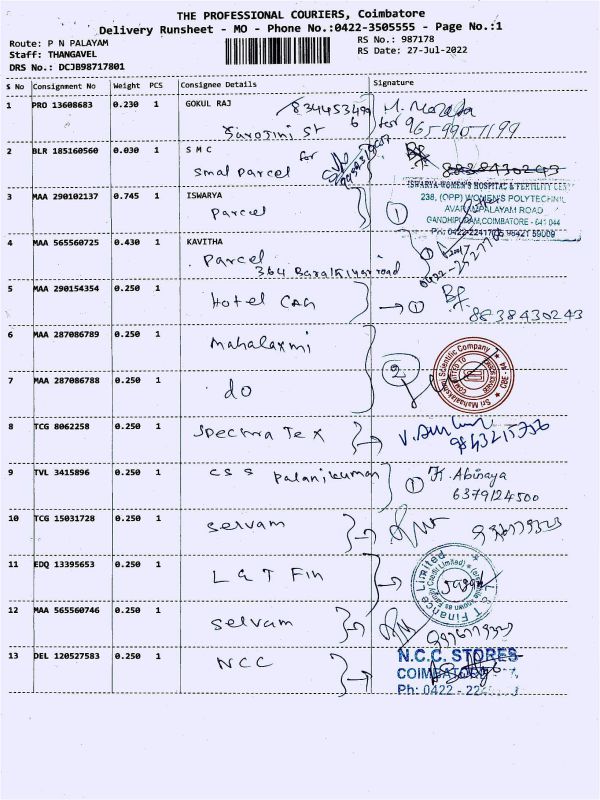 THE PROFESSIONAL COURIERS, Coimbatore
Delivery Runsheet - MO - Phone No.:0422-3505555 - Page No.:1
Route: P N PALAYAM
Staff: THANGAVEL
DRS No.: DCJB98717801
RS No.: 987178
RS Date: 27-Jul-2022
S No Consignment No Weight PCS Consignee Details Signature
1 PRO 13608683 0.230 1 GOKUL RAJ
Sarojini St
for 9659907199
2 BLR 185160560 0.030 1 S M C
Smal parcel for
8838430243
3 MAA 290102137 0.745 1 ISWARYA
Parcel 1
ISWARYA WOMEN'S HOSPITAL & FERTILITY CEN
238, (OPP) WOMEN'S POLYTECHNIC
AVARAMPALAYAM ROAD
GANDHIPURAM, COIMBATORE - 641 044
4 MAA 565560725 0.430 1 KAVITHA
Parcel 1
364
5 MAA 290154354 0.250 1 Hotel CAG 1
8838430243
6 MAA 287086789 0.250 1 Mahalaxmi
2
Sri Mahalakshmi Scientific Company
7 MAA 287086788 0.250 1 do
8 TCG 8062258 0.250 1 Spectra Tex
9843215756
9 TVL 3415896 0.250 1 C S S Palanikumar 1 K. Abinaya
6379124500
10 TCG 15031728 0.250 1 Servam
11 EDQ 13395653 0.250 1 L & T Fin
T Finance Limited
12 MAA 565560746 0.250 1 Selvam
13 DEL 120527583 0.250 1 NCC
N.C.C. STORES
COIMBATORE
Ph: 0422 - 22